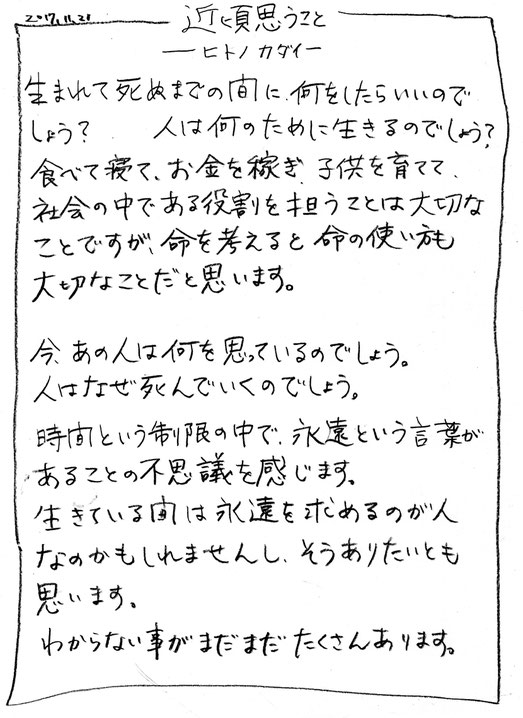 2017.11.21
近頃思うこと
― ヒトノカダイ ―
生まれて死ぬまでの間に、何をしたらいいので
しょう？ 人は何のために生きるのでしょう？
食べて寝て、お金を稼ぎ、子供を育てて、
社会の中である役割を担うことは大切な
ことですが、命を考えると命の使い方も
大切なことだと思います。
今、あの人は何を思っているのでしょう。
人はなぜ死んでいくのでしょう。
時間という制限の中で、永遠という言葉が
あることの不思議を感じます。
生きている間は永遠を求めるのが人
なのかもしれませんし、そうありたいとも
思います。
わからない事がまだまだたくさんあります。